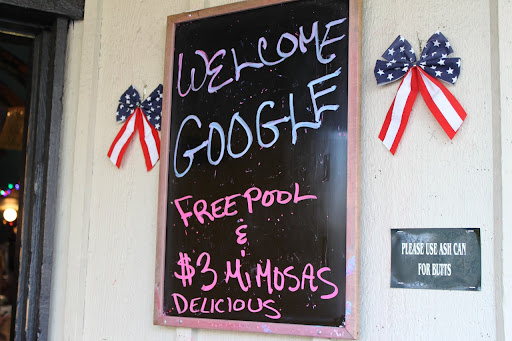 WELCOME
GOOGLE
FREE POOL
&
$3 MIMOSAS
DELICIOUS
PLEASE USE ASH CAN
FOR BUTTS